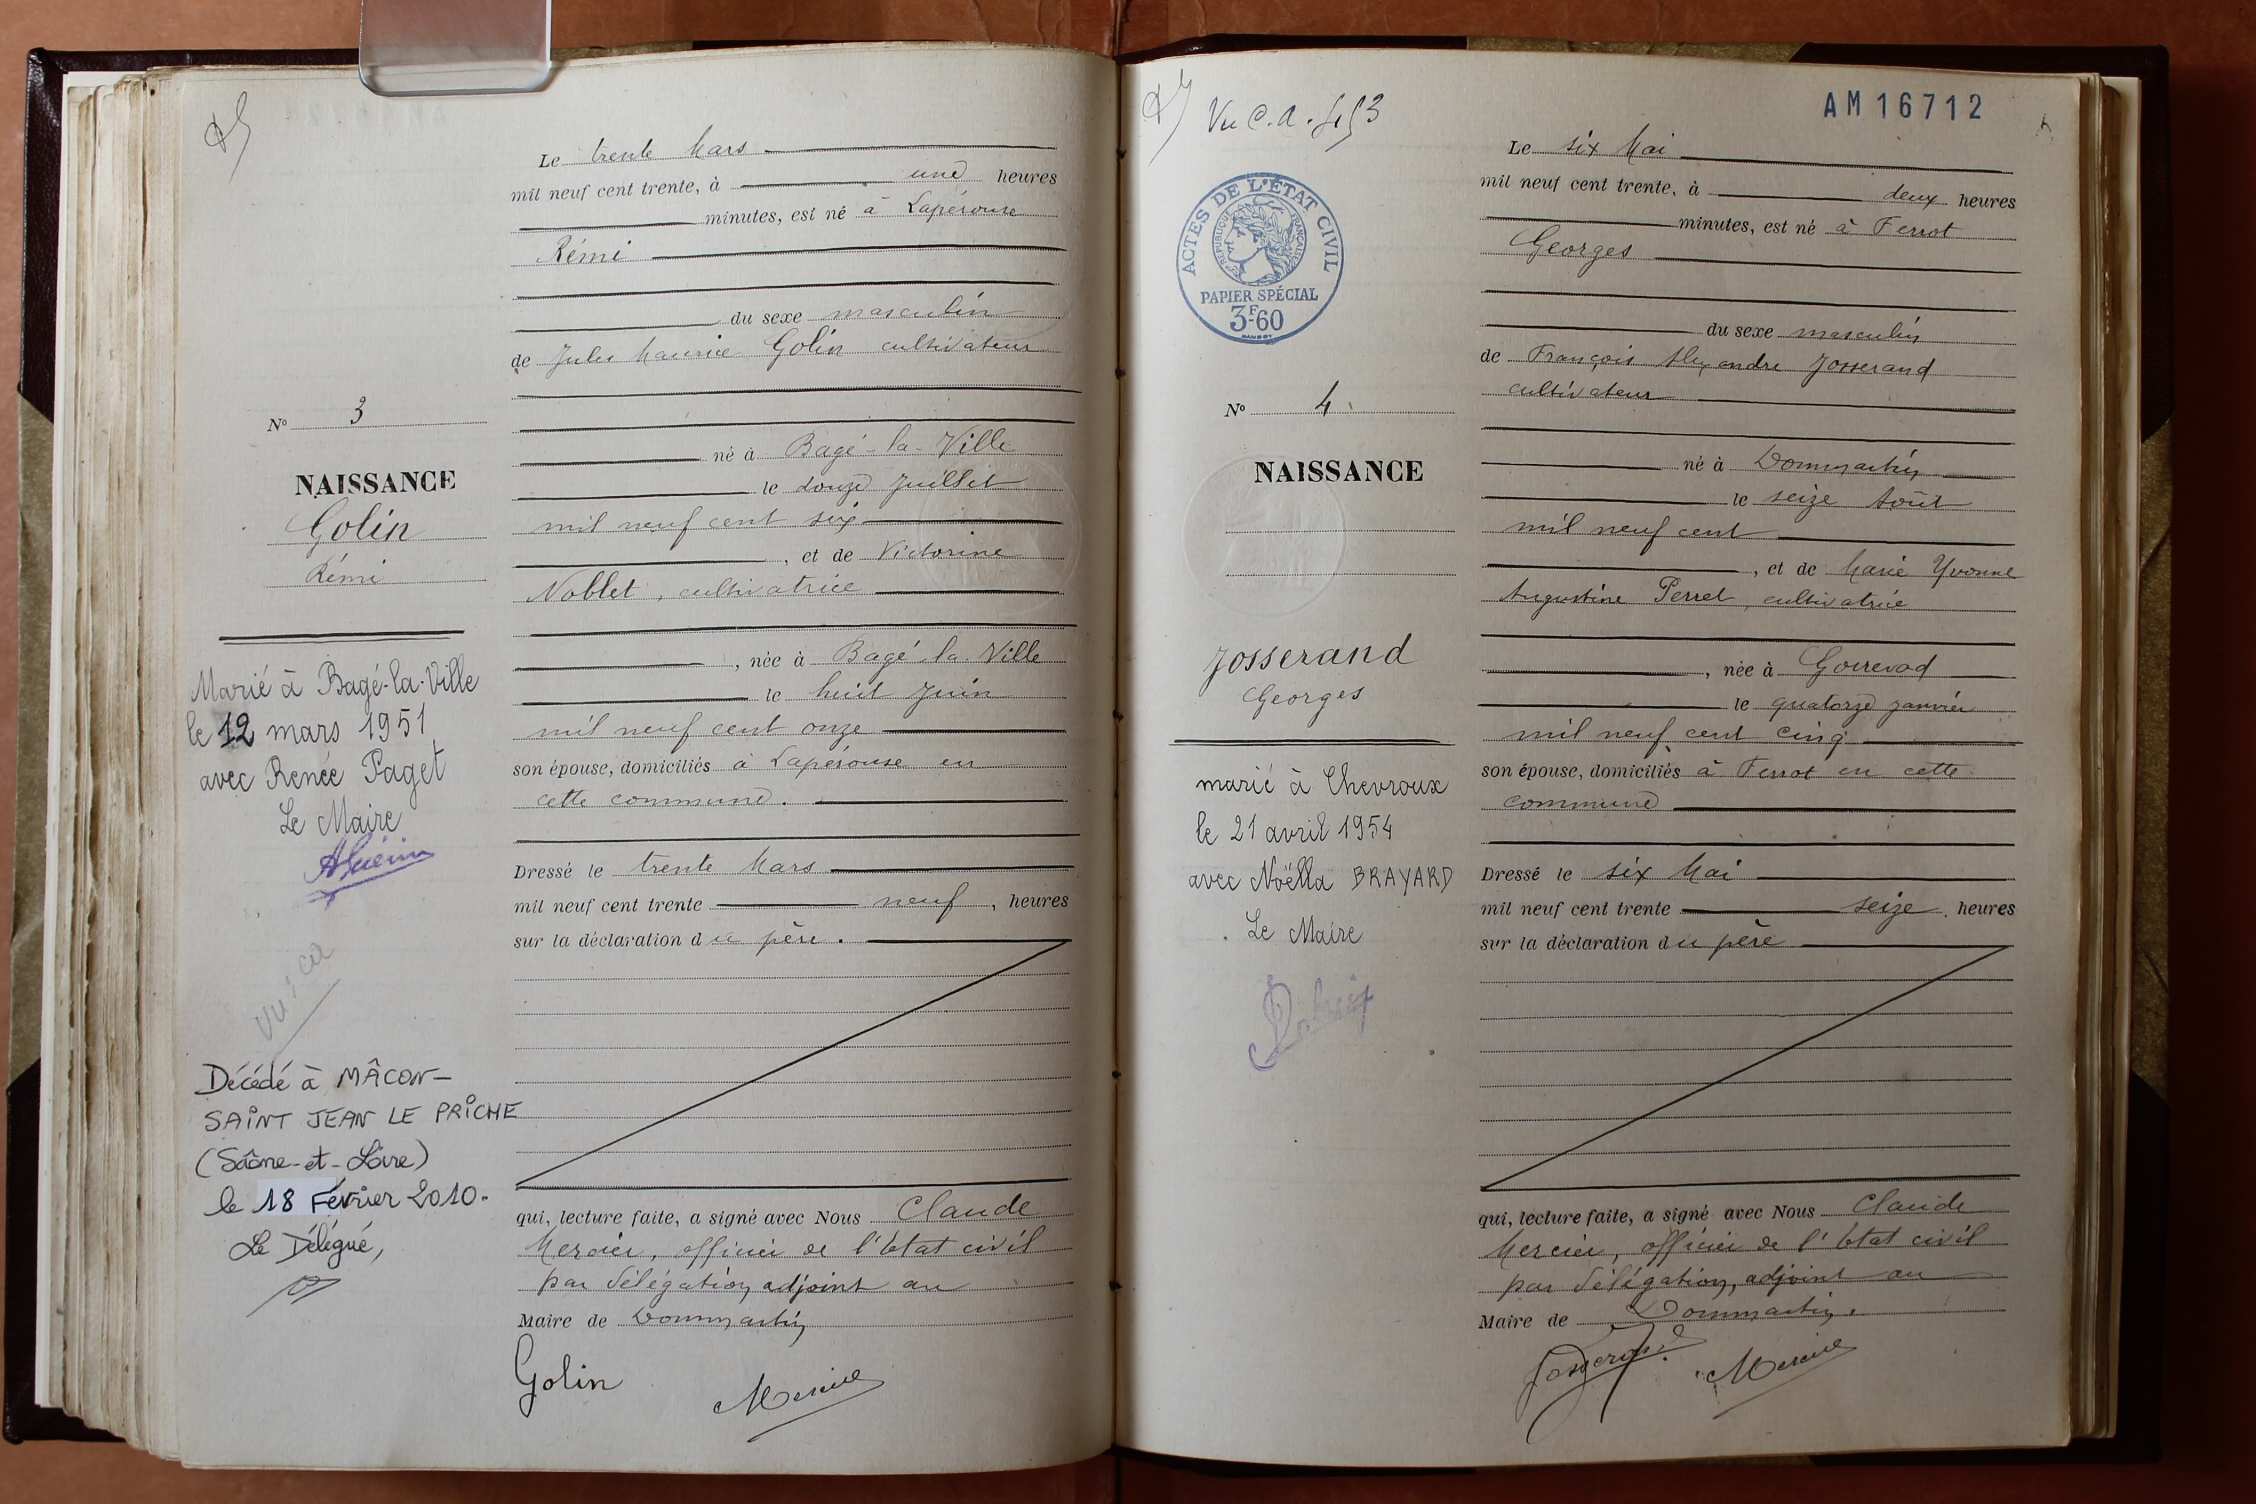 Le trente Mars
mil neuf cent trente, à une heures
minutes, est né à Lapérouse
Rémi
du sexe masculin
de Jules Maurice Golin cultivateur
né à Bagé-la-Ville
le douze Juillet
mil neuf cent six
, et de Victorine
Noblet, cultivatrice
, née à Bagé-la-Ville
le huit Juin
mil neuf cent onze
son épouse, domiciliés à Lapérouse en
cette commune.
Dressé le trente Mars
mil neuf cent trente neuf, heures
sur la déclaration du père.
qui, lecture faite, a signé avec Nous Claude
Mercier, officier de l'état civil
par délégation, adjoint au
Maire de Dommartin
Golin
Mercier
No 3
NAISSANCE
Golin
Rémi
Marié à Bagé-la-Ville
le 12 mars 1951
avec Renée Paget
Le Maire
AGuérin
Décédé à MÂCON-
SAINT JEAN LE PRICHE
(Saône-et-Loire)
le 18 Février 2010.
Le Délégué,
Vu C.A.
AM16712
ACTES DE L'ÉTAT CIVIL
RÉPUBLIQUE FRANÇAISE
PAPIER SPÉCIAL
3F60
No 4
NAISSANCE
Josserand
Georges
marié à Chevroux
le 21 avril 1954
avec Noëlla BRAYARD
Le Maire
Le six Mai
mil neuf cent trente, à deux heures
minutes, est né à Ferrot
Georges
du sexe masculin
de François Alexandre Josserand
cultivateur
né à Dommartin
le seize Août
mil neuf cent
, et de Marie Yvonne
Augustine Perret, cultivatrice
, née à Gorrevod
le quatorze janvier
mil neuf cent cinq
son épouse, domiciliés à Ferrot en cette
commune
Dressé le six Mai
mil neuf cent trente seize heures
sur la déclaration du père
qui, lecture faite, a signé avec Nous Claude
Mercier, officier de l'état civil
par délégation, adjoint au
Maire de Dommartin.
Josserand
Mercier